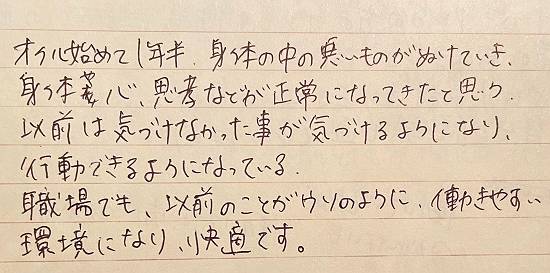 オイル始めて1年半、身体の中の悪いものがぬけていき、
身体、心、思考などが正常になってきたと思う。
以前は気づけなかった事が気づけるようになり、
行動できるようになっている。
職場でも、以前のことがウソのように、働きやすい
環境になり、快適です。